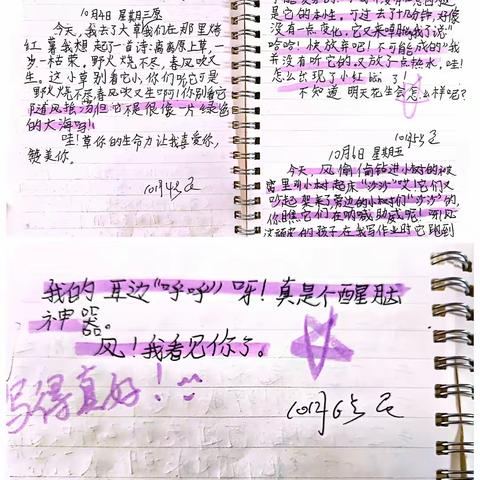 10月4日 星期三愿
今天,我去了大草我们在那里烤
红薯我想起了一首诗:离离原上草,一
岁一枯荣,野火烧不尽,春风吹又
生。这小草别看它小,你们听它可是
野火烧不尽春风吹又生啊!你别看它
随风摇荡但它是很像一片绿色
的大海呀!
哇!草你的生命力让我喜爱你,
赞美你。
是它的本性。可过去了十分钟,好像
没有一点变化,它又来
哈哈!快放弃吧!不可能成的"我
并没有听它的,又放了一点热水,哇!
怎么出现了小红
不知道明天花生会怎么样呢?
10月6日 星期五
今天,风偷偷钻进小树的被
窝里,叫小树起床"沙沙"哎!它们又
吵起架来了旁边的小树们"沙沙"的,
你瞧它们在呐喊助威呢!呀,
的孩子在我写作业时它跑到
我的耳边"呼呼"呀!真是个醒脑
神器。
风!我看见你了。
写得真好!